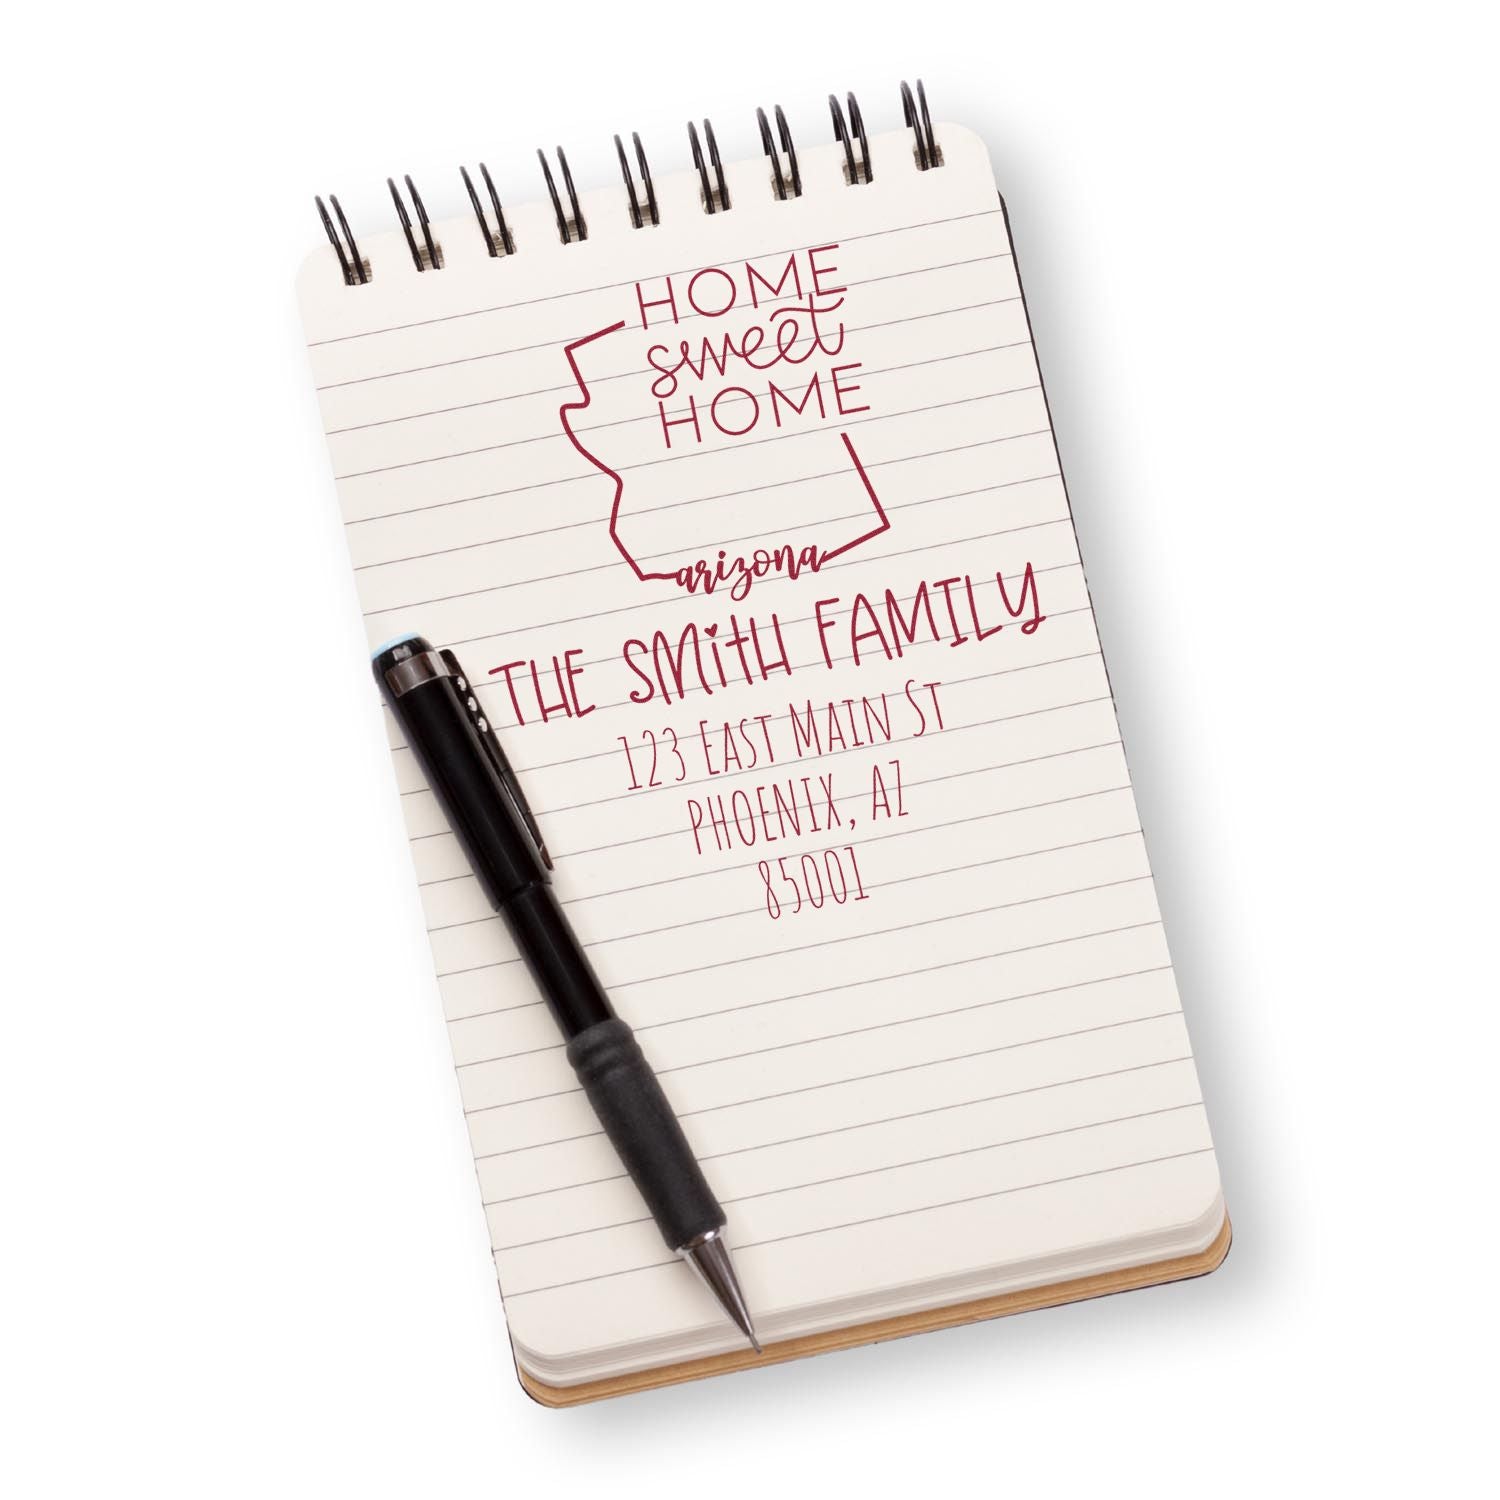 HOME
sweet
HOME
arizona
THE SMiTH FAMILY
123 EAST MAIN ST
PHOENIX, AZ
85001